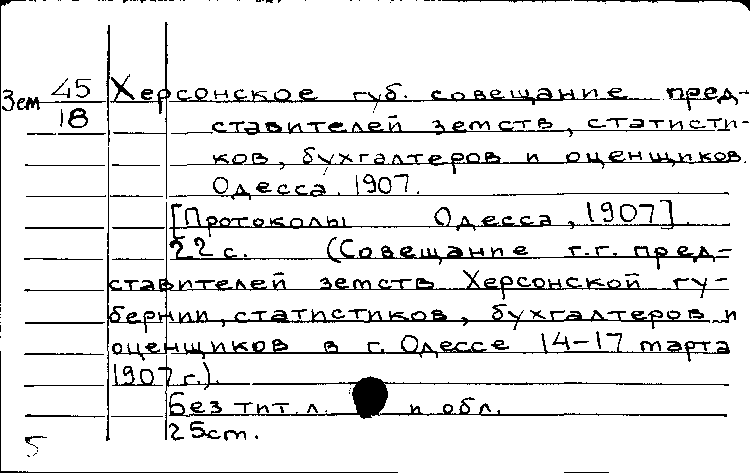 Зем 45/18 Херсонское губ. совещание пред-
ставителей земств, статисти-
ков, бухгалтеров и оценщиков.
Одесса. 1907.
[Протоколы Одесса, 1907].
22 с. (Совещание г.г. пред-
ставителей земств Херсонской гу-
бернии, статистиков, бухгалтеров и
оценщиков в г. Одессе 14-17 марта
1907 г.).
Без тит. л. и обл.
25ст.
5